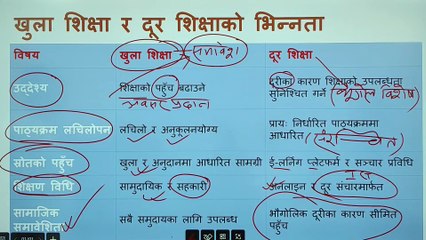 खुला शिक्षा र दूर शिक्षाको भिन्नता
विषय
खुला शिक्षा
समावेश
दूर शिक्षा
उद्देश्य
शिक्षाको पहुँच बढाउने
दूरीका कारण शिक्षाको उपलब्धता
सुनिश्चित गर्ने
पाठ्यक्रम लचिलोपन
लचिलो र अनुकूलनयोग्य
प्रायः निर्धारित पाठ्यक्रममा
आधारित
स्रोतको पहुँच
खुला र अनुदानमा आधारित सामग्री
ई-लर्निङ प्लेटफर्म र सञ्चार प्रविधि
शिक्षण विधि
सामुदायिक र सहकारी
अनलाइन र दूर संचारमार्फत
सामाजिक
समावेशिता
सबै समुदायका लागि उपलब्ध
भौगोलिक दूरीका कारण सीमित
पहुँच